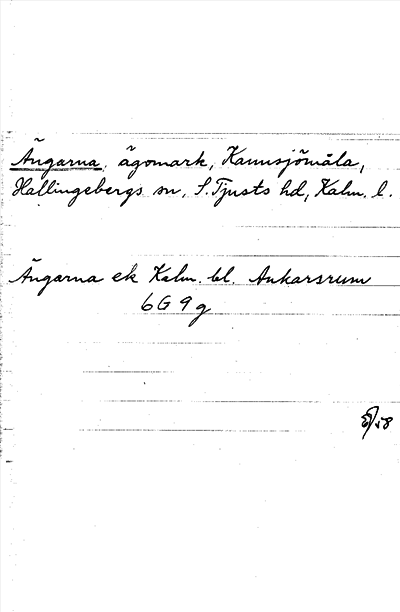 Ängarna, ägomark, Kannsjömåla,
Hallingebergs sn, S. Tjusts hd, Kalm. l.
Ängarna ek Kalm. bl. Ankarsrum
6G 9g
/58